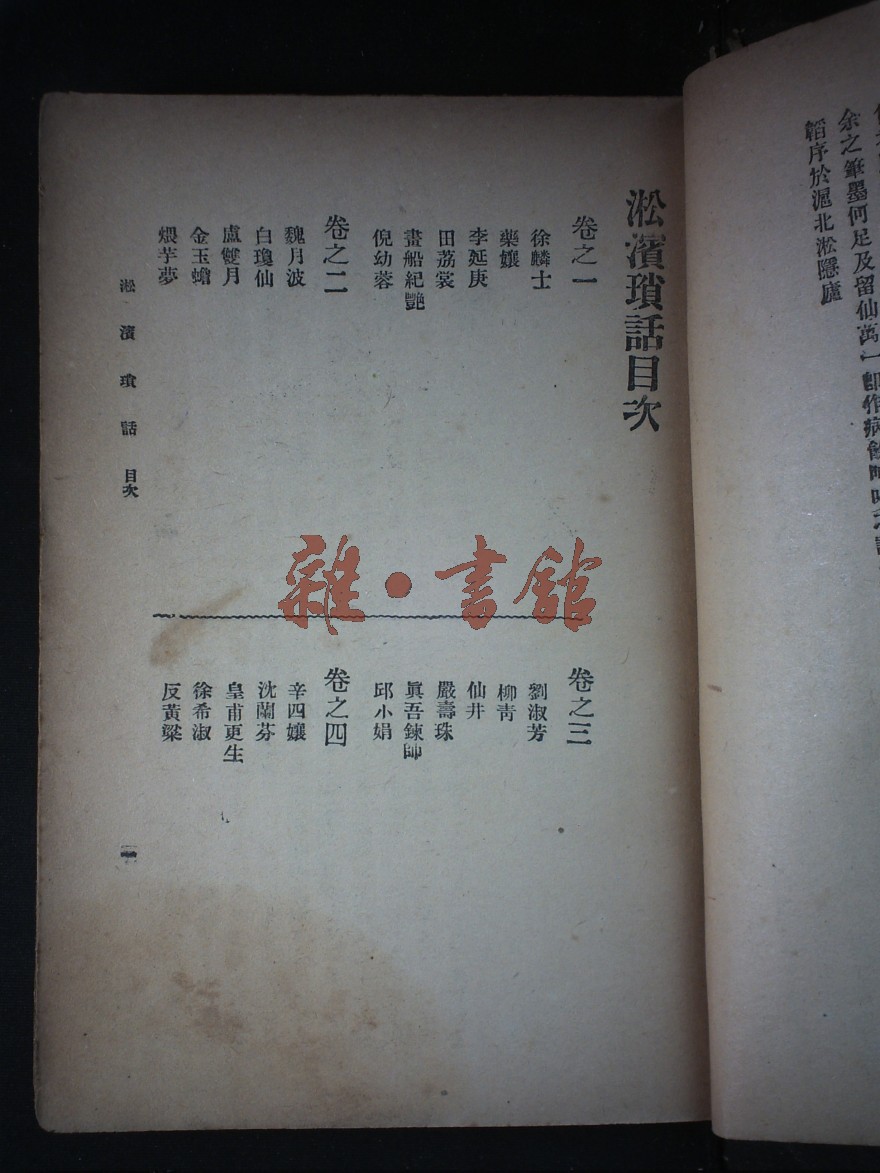 余之筆墨何足及留仙萬一即作病
韜序於滬北淞隱廬
淞濱瑣話目次
卷之一
徐麟士
藥孃
李延庚
田荔裳
畫船紀艷
倪幼蓉
卷之二
魏月波
白瓊仙
盧雙月
金玉蟾
煨芋夢
卷之三
劉淑芳
柳靑
仙井
嚴壽珠
眞吾鍊師
邱小娟
卷之四
辛四孃
沈蘭芬
皇甫更生
徐希淑
反黃粱
淞濱瑣話 目次
一
雜·書館